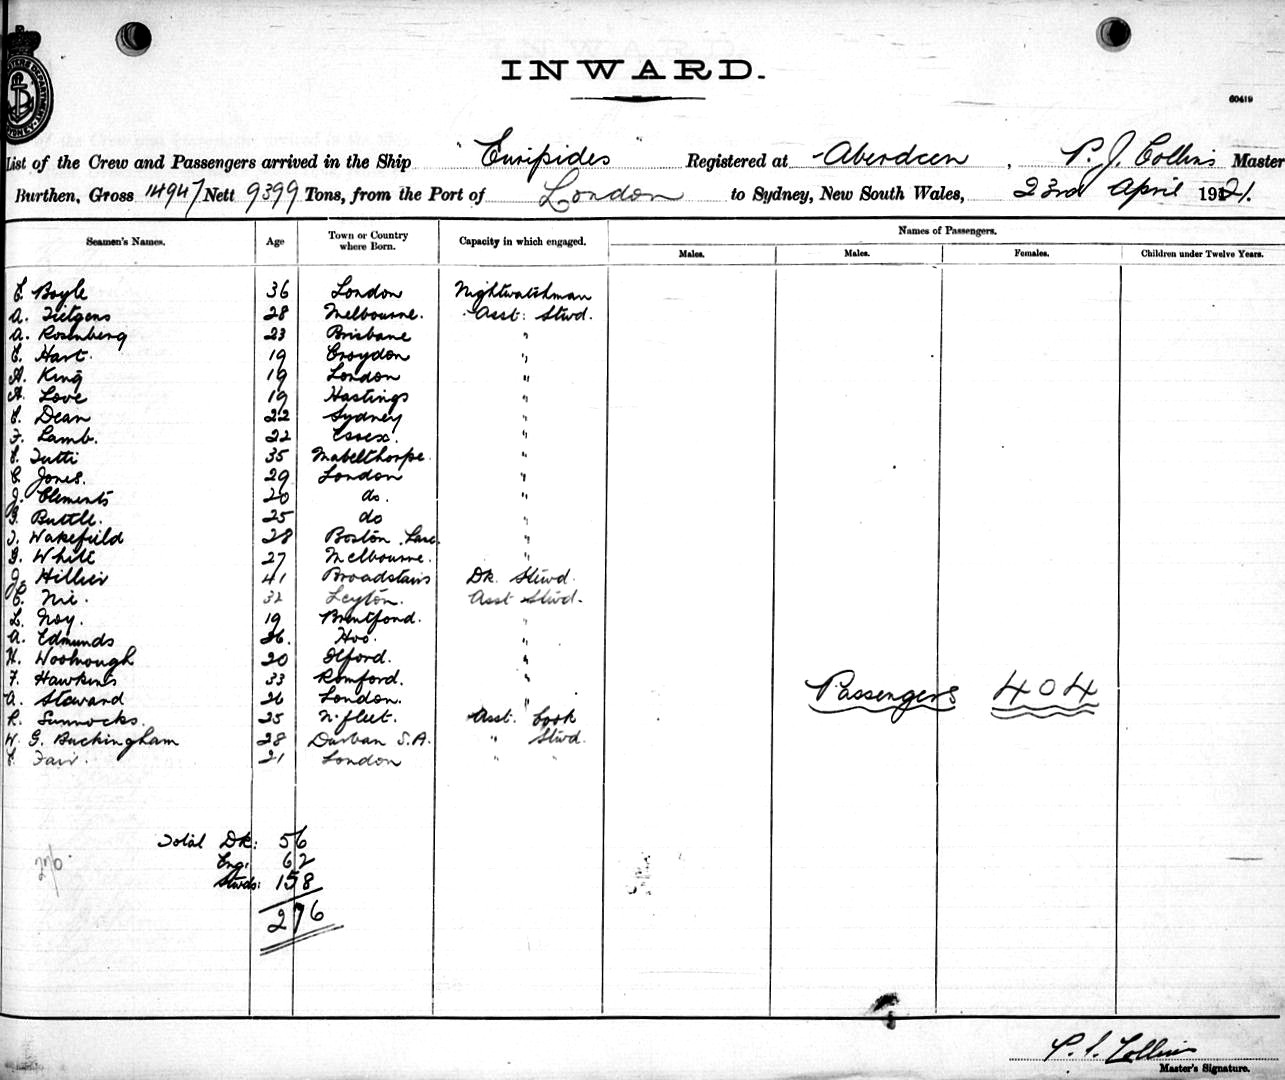 INWARD.
60419
List of the Crew and Passengers arrived in the Ship "Euripides" Registered at Aberdeen, P. J. Collins Master
Burthen, Gross 14947 Nett 9399 Tons, from the Port of London to Sydney, New South Wales, 23rd April 1921.
Seamen's Names. Age Town or Country where Born. Capacity in which engaged. Names of Passengers.
Males. Males. Females. Children under Twelve Years.
Boyle 36 London Nightwatchman
A. Tietgens 28 Melbourne. Asst: Stwd.
A. Rosenberg 23 Brisbane "
Hart. 19 Croydon "
A. King 19 London "
A. Love 19 Hastings "
Dean 22 Sydney "
F. Lamb. 22 Essex. "
Tutti 35 Mabelthorpe. "
Jones. 29 London "
J. Clements 20 do. "
Buttle. 25 do "
Wakefield 28 Boston "
White 27 Melbourne. "
J. Hillier 41 Broadstairs Dk. Stwd.
32 Leyton. Asst Stwd.
L. Noy. 19 Brentford. "
A. Edmunds 26. Hoo. "
H. Woolnough 20 Ilford. "
F. Hawkins 33 Romford. "
A. Steward 26 London. "
R. Sunnocks. 25 N. fleet. Asst. Cook
W. G. Buckingham 28 Durban S.A. " Stwd.
Fair. 21 London " "
Passengers 404
Total Dk: 56
Eng: 62
Stwds: 158
276
276
P. J. Collins
Master's Signature.